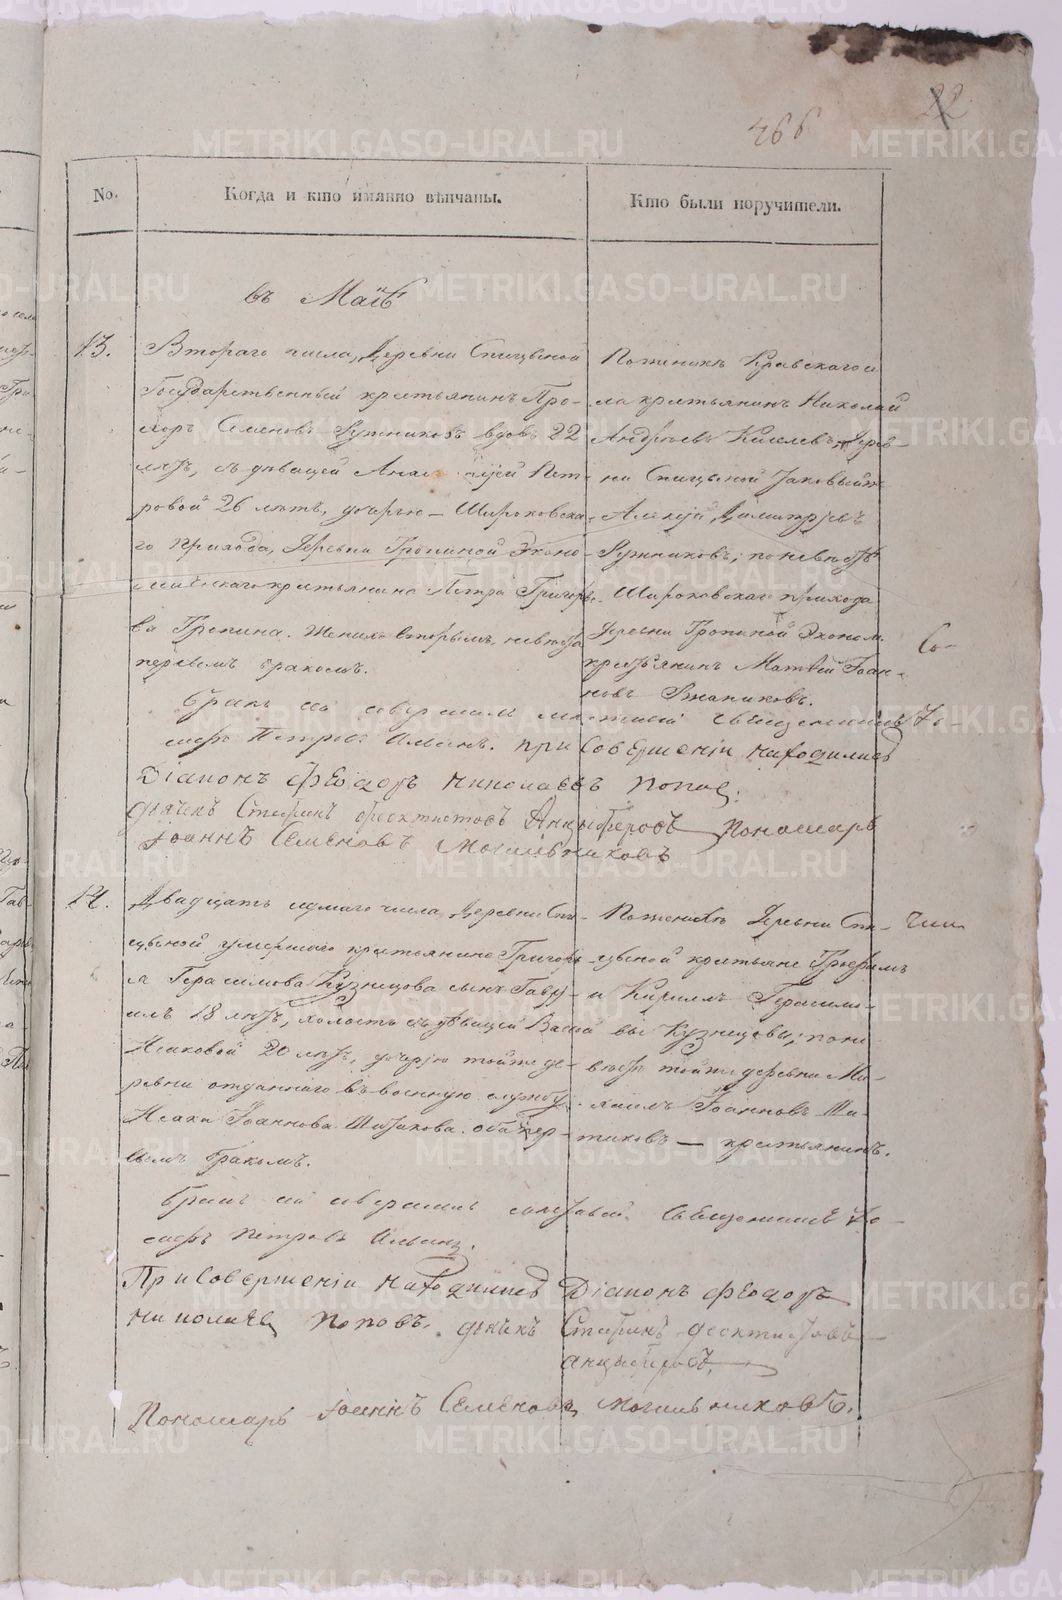 22
466
No.
Когда и кто имянно вѣнчаны.
Кто были поручители.
въ Маiѣ
13.
Втораго числа, Деревни Спицыной
Государственный крестьянинъ Про-
хоръ Семеновъ вдовъ 22
лѣтъ, съ дѣвицей Пет-
ровой 26 лѣтъ, дочерью Широковска-
го прихода, Деревни Тропиной Эконо-
мическаго крестьянина Петра Григорь-
ва Тропина. Женихъ вторымъ, невѣста
первымъ бракомъ.
По женихѣ
ла крестьянинъ Николай
Андреевъ Киселевъ, Дерев-
ни Спицыной
Алексѣй Димитрiевъ
по невѣстѣ
Широковскаго прихода
Деревни Тропиной Эконом.
крестьянинъ Матвѣй Iоан-
новъ
Бракъ сей совершилъ мѣстный священникъ Iо-
сифъ Петровъ при совершенiи находились
Дiаконъ Феодоръ Николаевъ Попов.
дьячекъ Стефанъ Феоктистовъ Анцыферовъ Пономарь
Iоаннъ Семеновъ Могильниковъ
14.
Двадцать седмаго числа Деревни Спи-
цыной умершаго крестьянина Григорь-
я Герасимова Кузнецова сынъ Гаврi-
илъ 18 лѣтъ, холостъ съ дѣвицей
Исаковой 20 лѣтъ, дочерью той же де-
ревни отданнаго въ военную службу
Исака Iоаннова Шатикова. оба пер-
вымъ бракомъ.
По женихѣ Деревни Спи-
цыной крестьяне Трофимъ
и Кириллъ Герасимо-
вы Кузнецовы; по не-
вѣстѣ той же деревни Ми-
хаилъ Iоанновъ Ша-
тиковъ — крестьянинъ.
Бракъ сей совершилъ священникъ Iо-
сифъ Петровъ
При совершенiи находились Дiаконъ Феодоръ
Николаев Поповъ. дьячекъ Стефанъ Феоктистовъ
Анцыферовъ.
Пономарь Iоаннъ Семеновъ Могильниковъ.
METRIKI.GASO-URAL.RU